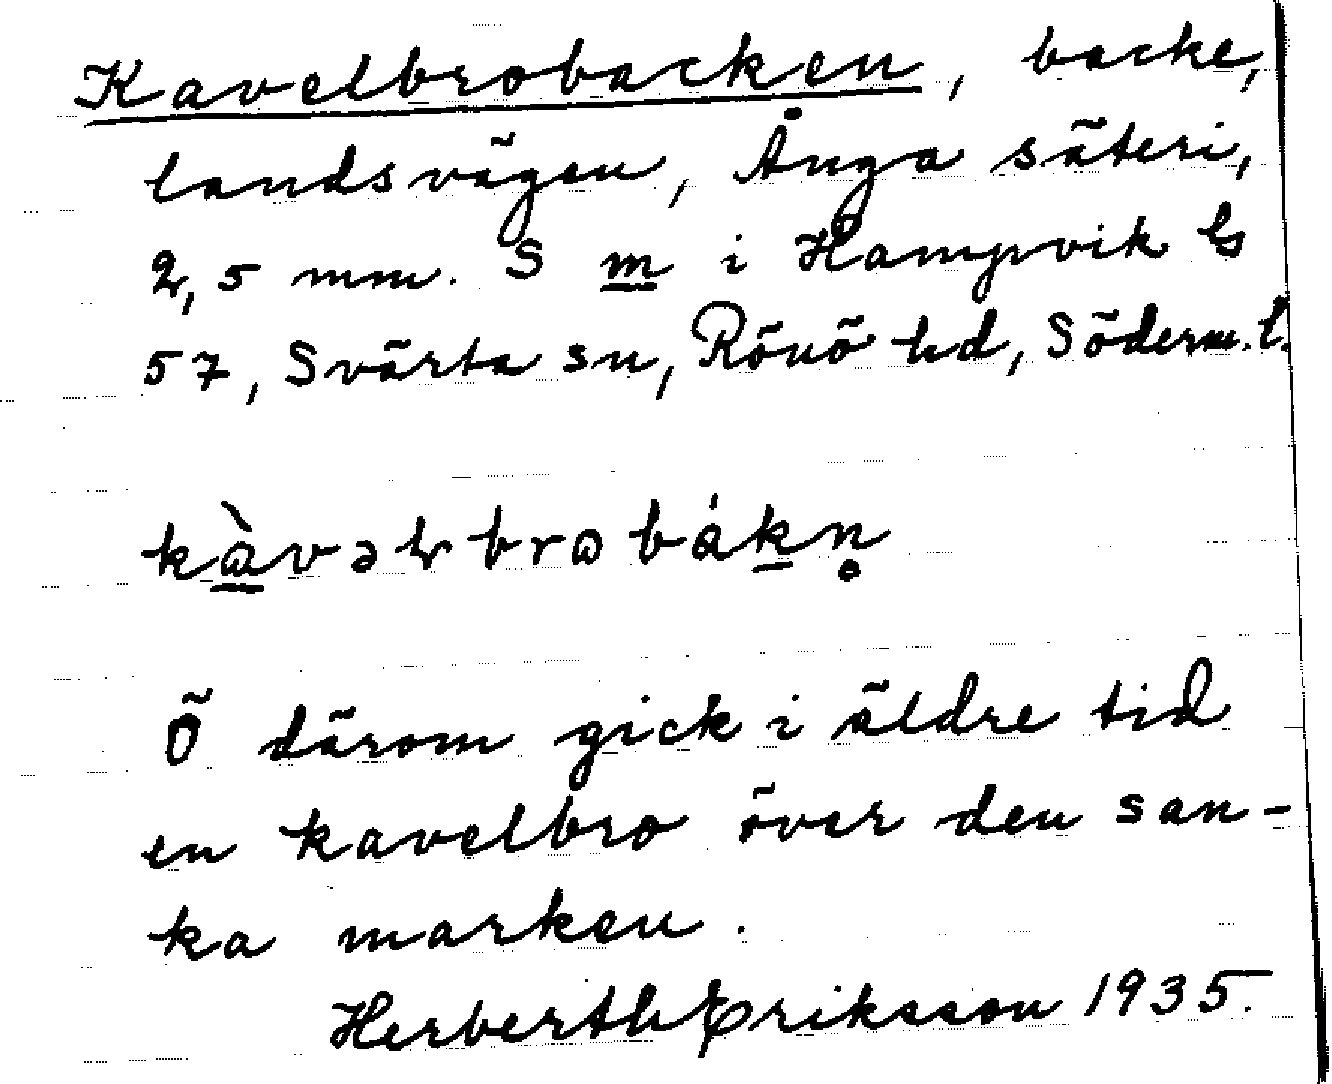 Kavelbrobacken, backe,
landsvägen, Ånga säteri,
2,5 mm. S m i Hampvik Es
57, Svärta sn, Rönö hd, Söderm. l.
kàvəɫbrɷbákn̥
Ö därom gick i äldre tid
en kavelbro över den san-
ka marken.
Herberth Eriksson 1935.